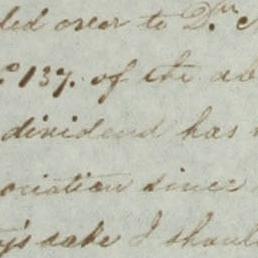 ded over to Dr.
137. of the ab
dividend has
ociation since
y's sake I shoul